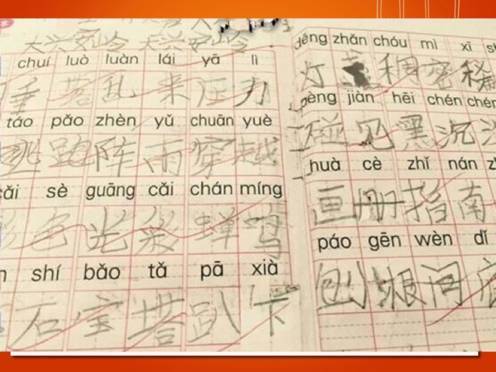 大兴安岭 大兴安岭
chuí luò luàn lái yā lì
垂 落 乱 来 压 力
táo pǎo zhèn yǔ chuān yuè
逃 跑 阵 雨 穿 越
sè guāng cǎi chán míng
色 光 彩 蝉 鸣
shí bǎo tǎ pā xià
石 宝 塔 趴 下
dēng zhǎn chóu mì xī
灯 稠 密 稀
pèng jiàn hēi chén chén
碰 见 黑 沉 沉
huà cè zhǐ nán
画 册 指 南
páo gēn wèn dǐ
刨 根 问 底